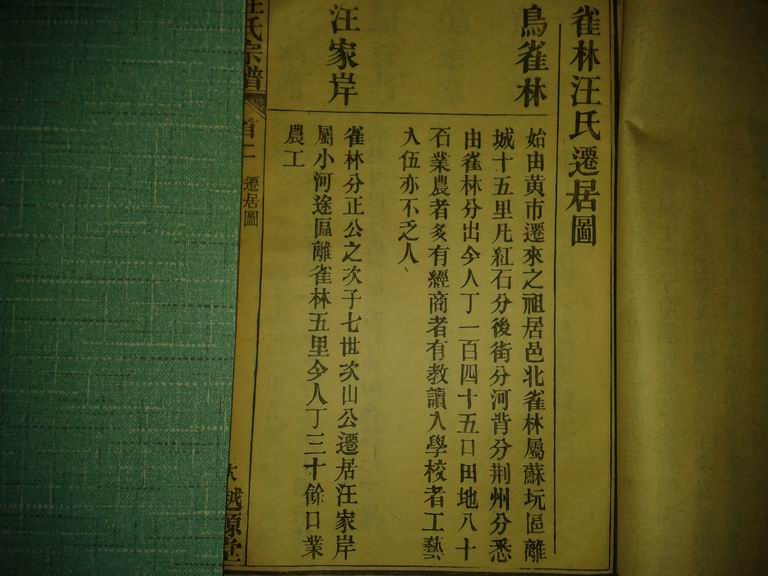 雀林汪氏遷居圖
鳥雀林
始由黃市遷來之祖居邑北雀林屬蘇坑區離
城十五里凡紅石分後街分河背分荆州分悉
由雀林分出今人丁一百四十五口田地八十
石業農者多有經商者有教讀入學校者工藝
入伍亦不乏人、
汪家岸
雀林分正公之次子七世次山公遷居汪家岸
屬小河途區離雀林五里今人丁三十餘口業
農工
汪氏宗譜
首二
遷居圖
越源堂